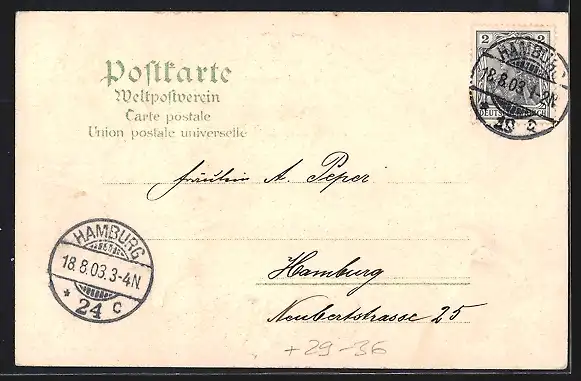 Postkarte
Weltpostverein
Carte postale
Union postale universelle
2 2
HAMBURG
18.8.03.3-4N
c
fräulein A. Peper
HAMBURG
18.8.03.3-4N
* 24 c
Hamburg
Neubertstrasse 25
+29-36